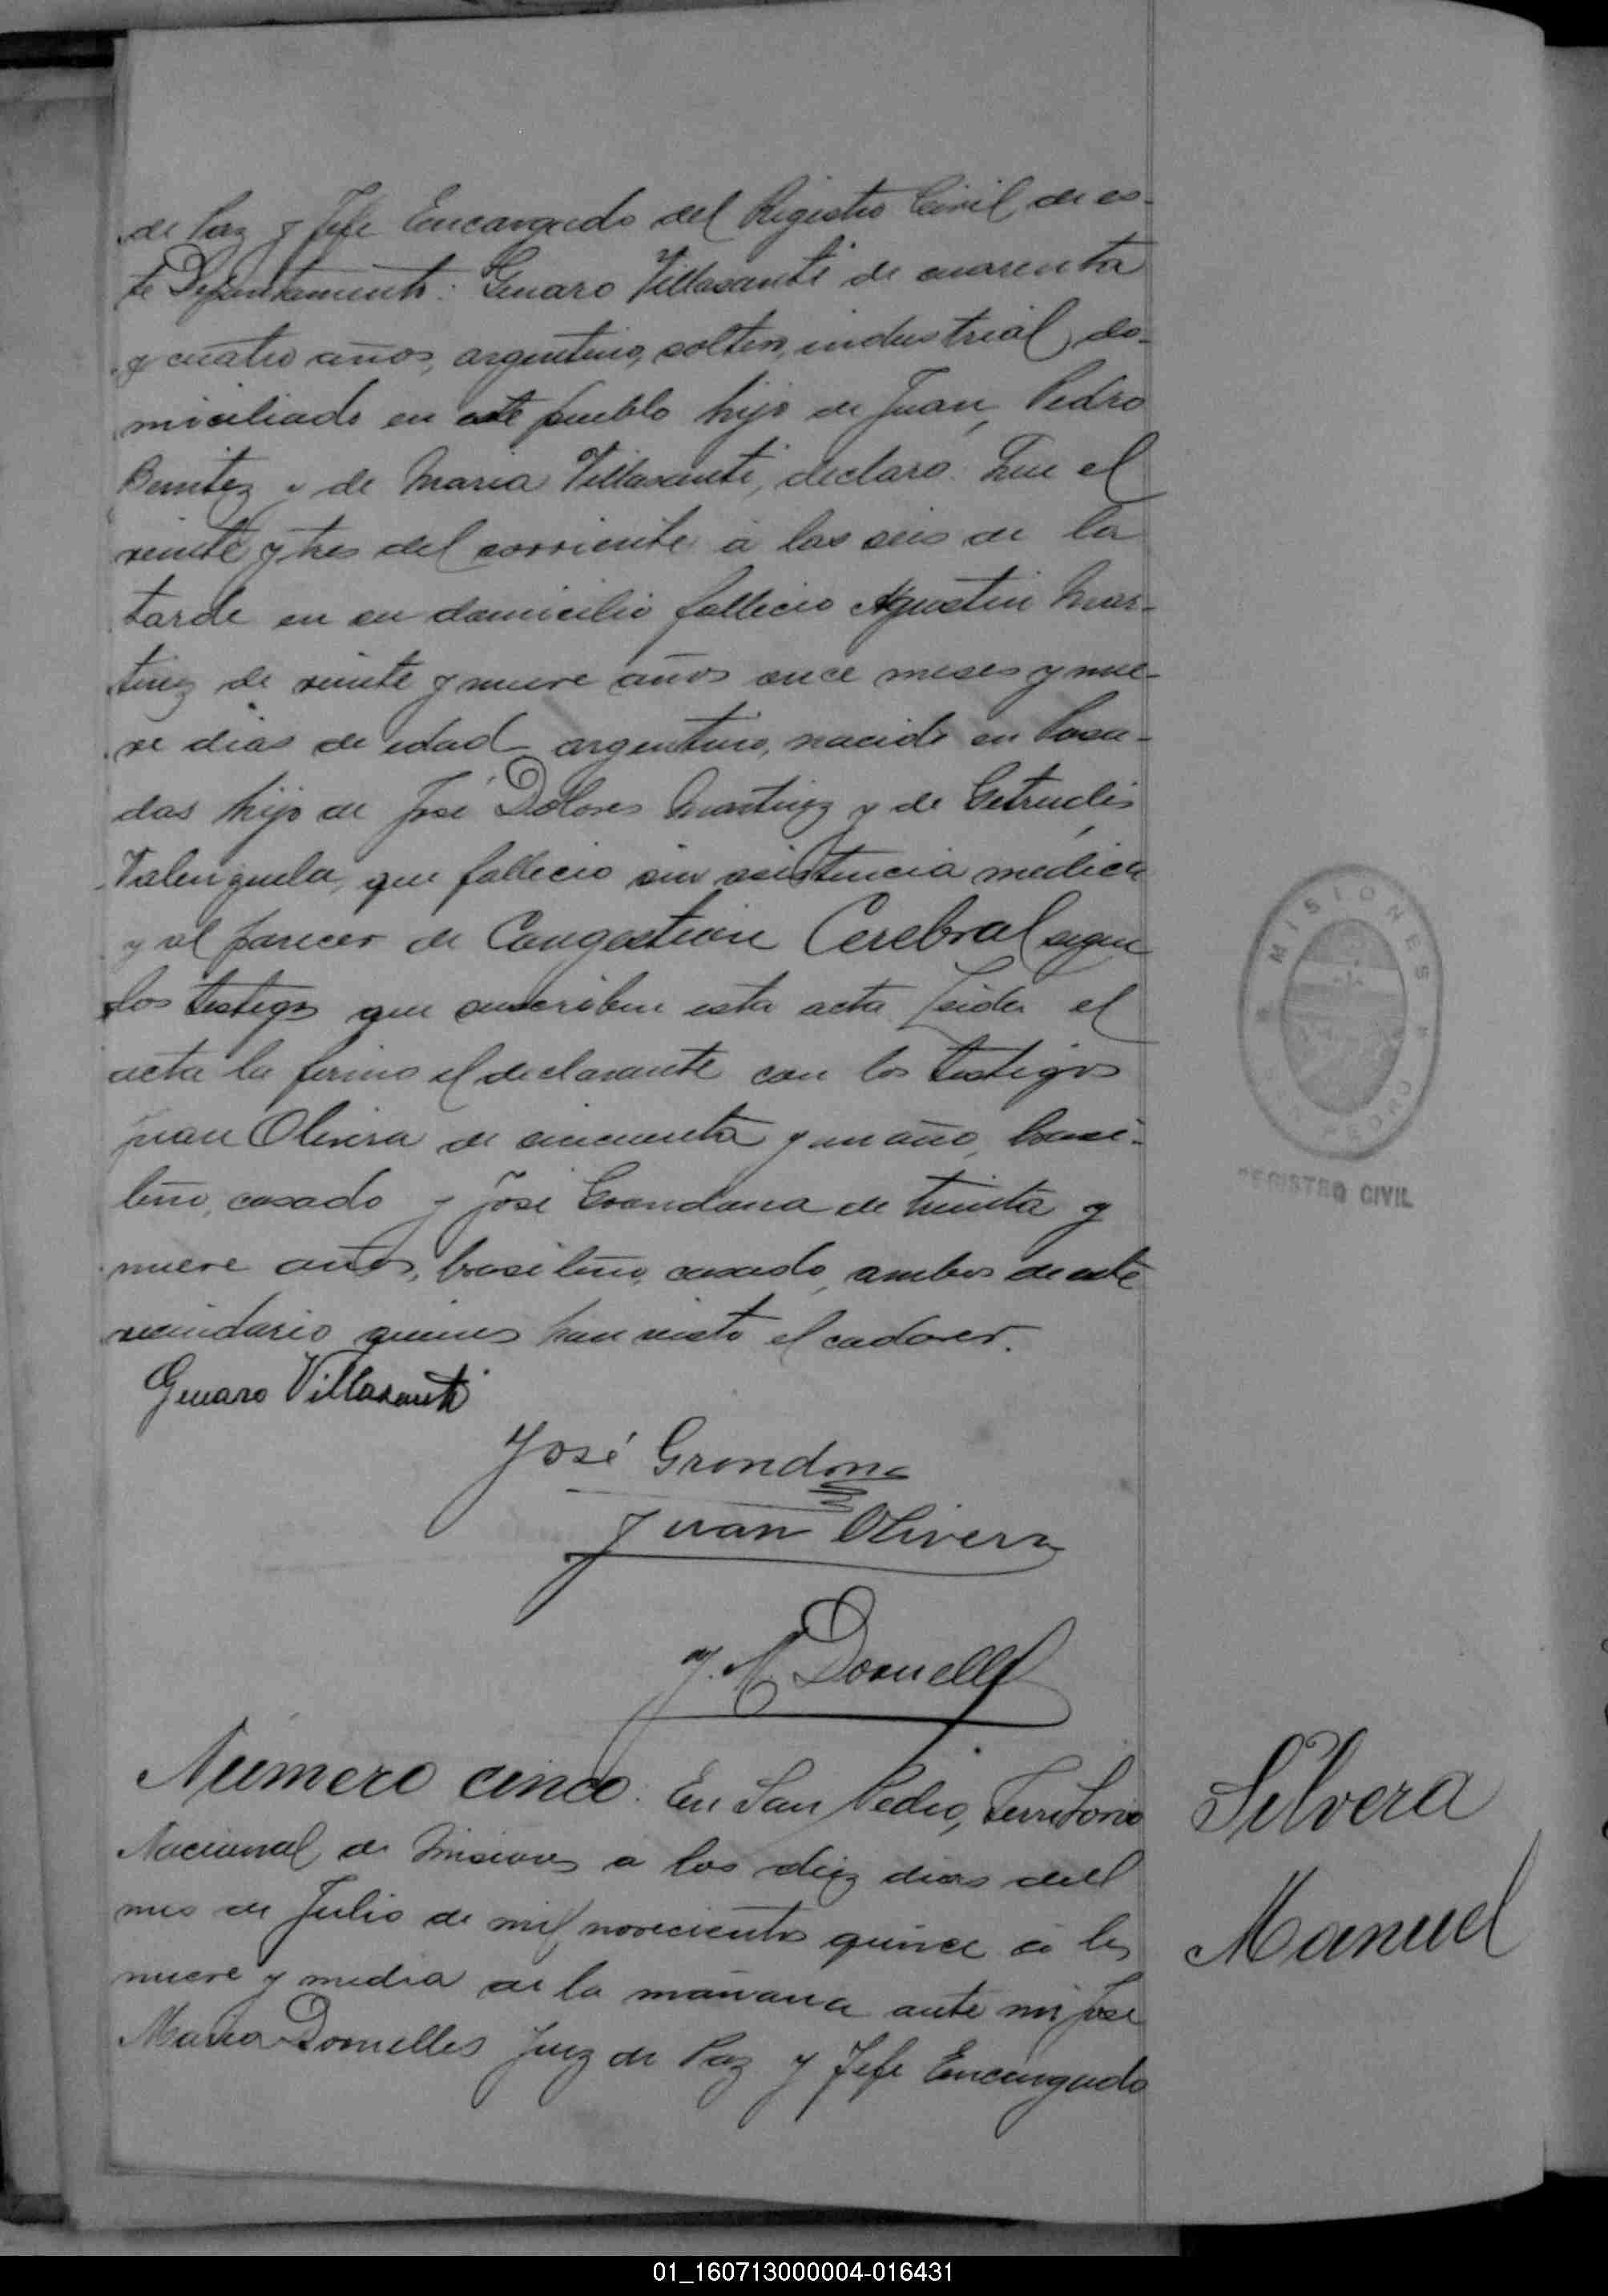 de Paz y Jefe Encargado del Registro Civil de es-
te Departamento: Genaro Villasanti de cuarenta
y cuatro años, argentino, soltero, industrial, do-
miciliado en este pueblo hijo de Juan Pedro
Benitez y de Maria Villasanti, declaró: Que el
veinte y tres del corriente á las seis de la
tarde en su domicilio fallecio Agustin Mar-
tinez de veinte y nueve años once meses y nue-
ve dias de edad argentino, nacido en Posa-
das hijo de José Dolores Martinez y de Getrudis
Valenzuela, que fallecio sin asistencia medica
y al parecer de Congestion Cerebral segun
los testigos que suscriben esta acta Leida el
acta la firmo el declarante con los testigos
Juan Olivera de cincuenta y un año, brasi-
leño, casado y José Grondona de treinta y
nueve años, brasileño, casado, ambos de este
vecindario quienes han visto el cadaver.
Genaro Villasanti
José Grondona
Juan Olivera
J. M. Dornelles
Número cinco: En San Pedro, Territorio
Nacional de Misiones a los diez dias del
mes de Julio de mil novecientos quince á las
nueve y media de la mañana ante mi José
Maria Dornelles Juez de Paz y Jefe Encargado
Silvera
Manuel
MISIONES
SAN PEDRO
REGISTRO CIVIL
01_160713000004-016431